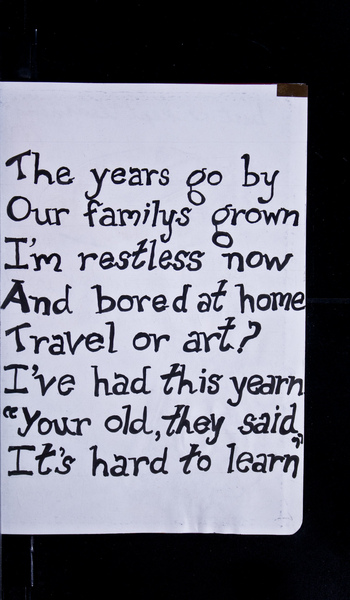 The years go by
Our familys grown
I'm restless now
And bored at home
Travel or art?
I've had this yearn
"Your old, they said,
It's hard to learn"